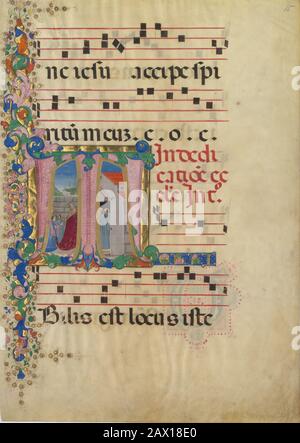 ne iesu accipe spi
ritũ meuz. c. o. c.
In dedi
catiõe ec
clie Int.
T
Bilis est locus iste
alamy
Image ID: 2AX18E0
www.alamy.com